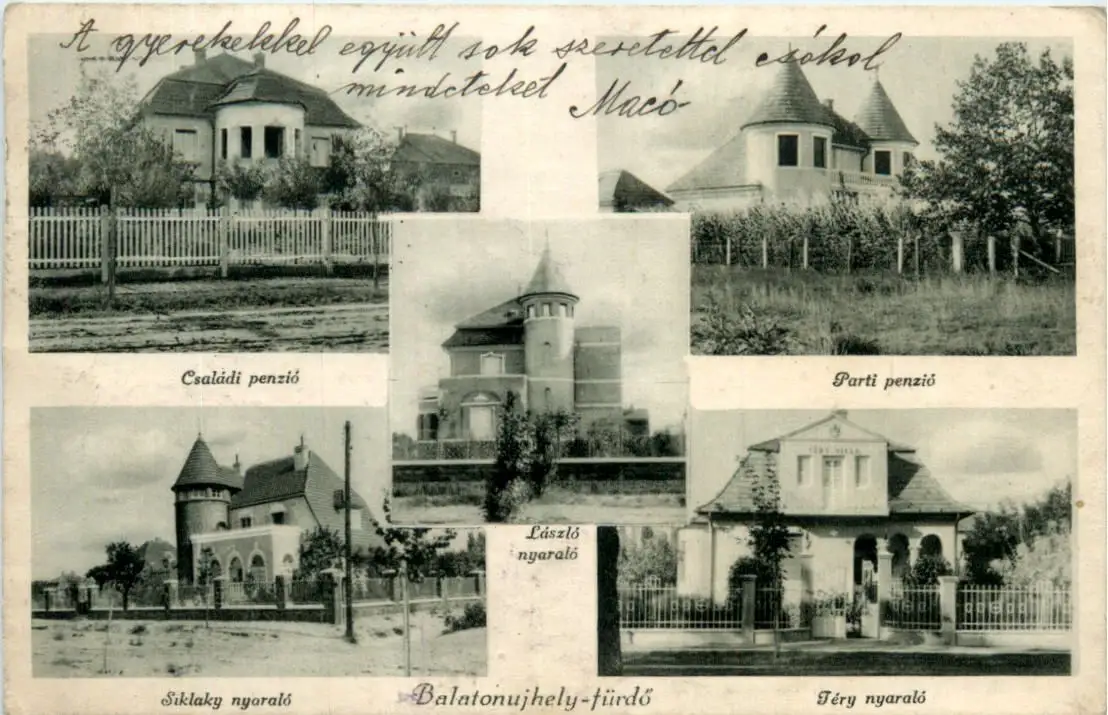 A gyerekekkel együtt sok szeretettel csókol
mindeteket Macó
Családi penzió
Parti penzió
László
nyaraló
TÉRY VILLA
Siklaky nyaraló
Balatonujhely-fürdő
Téry nyaraló